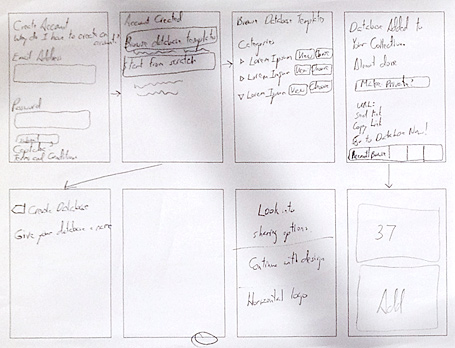 Create Account
Why do I have to create an
account?
Email Address
Password
Terms and Conditions
Account Created
Browse database templates
Start from scratch
Browse Database Templates
Categories
Lorem Ipsum View Choose
Lorem Ipsum View Choose
Lorem Ipsum View Choose
Database Added to
Your Collection
Almost done
Make Private?
URL:
Send
Copy Link
Go to Database Now!
Create Database
Give your database a name
Look into
sharing options
Continue with design
Horizontal logo
37
Add